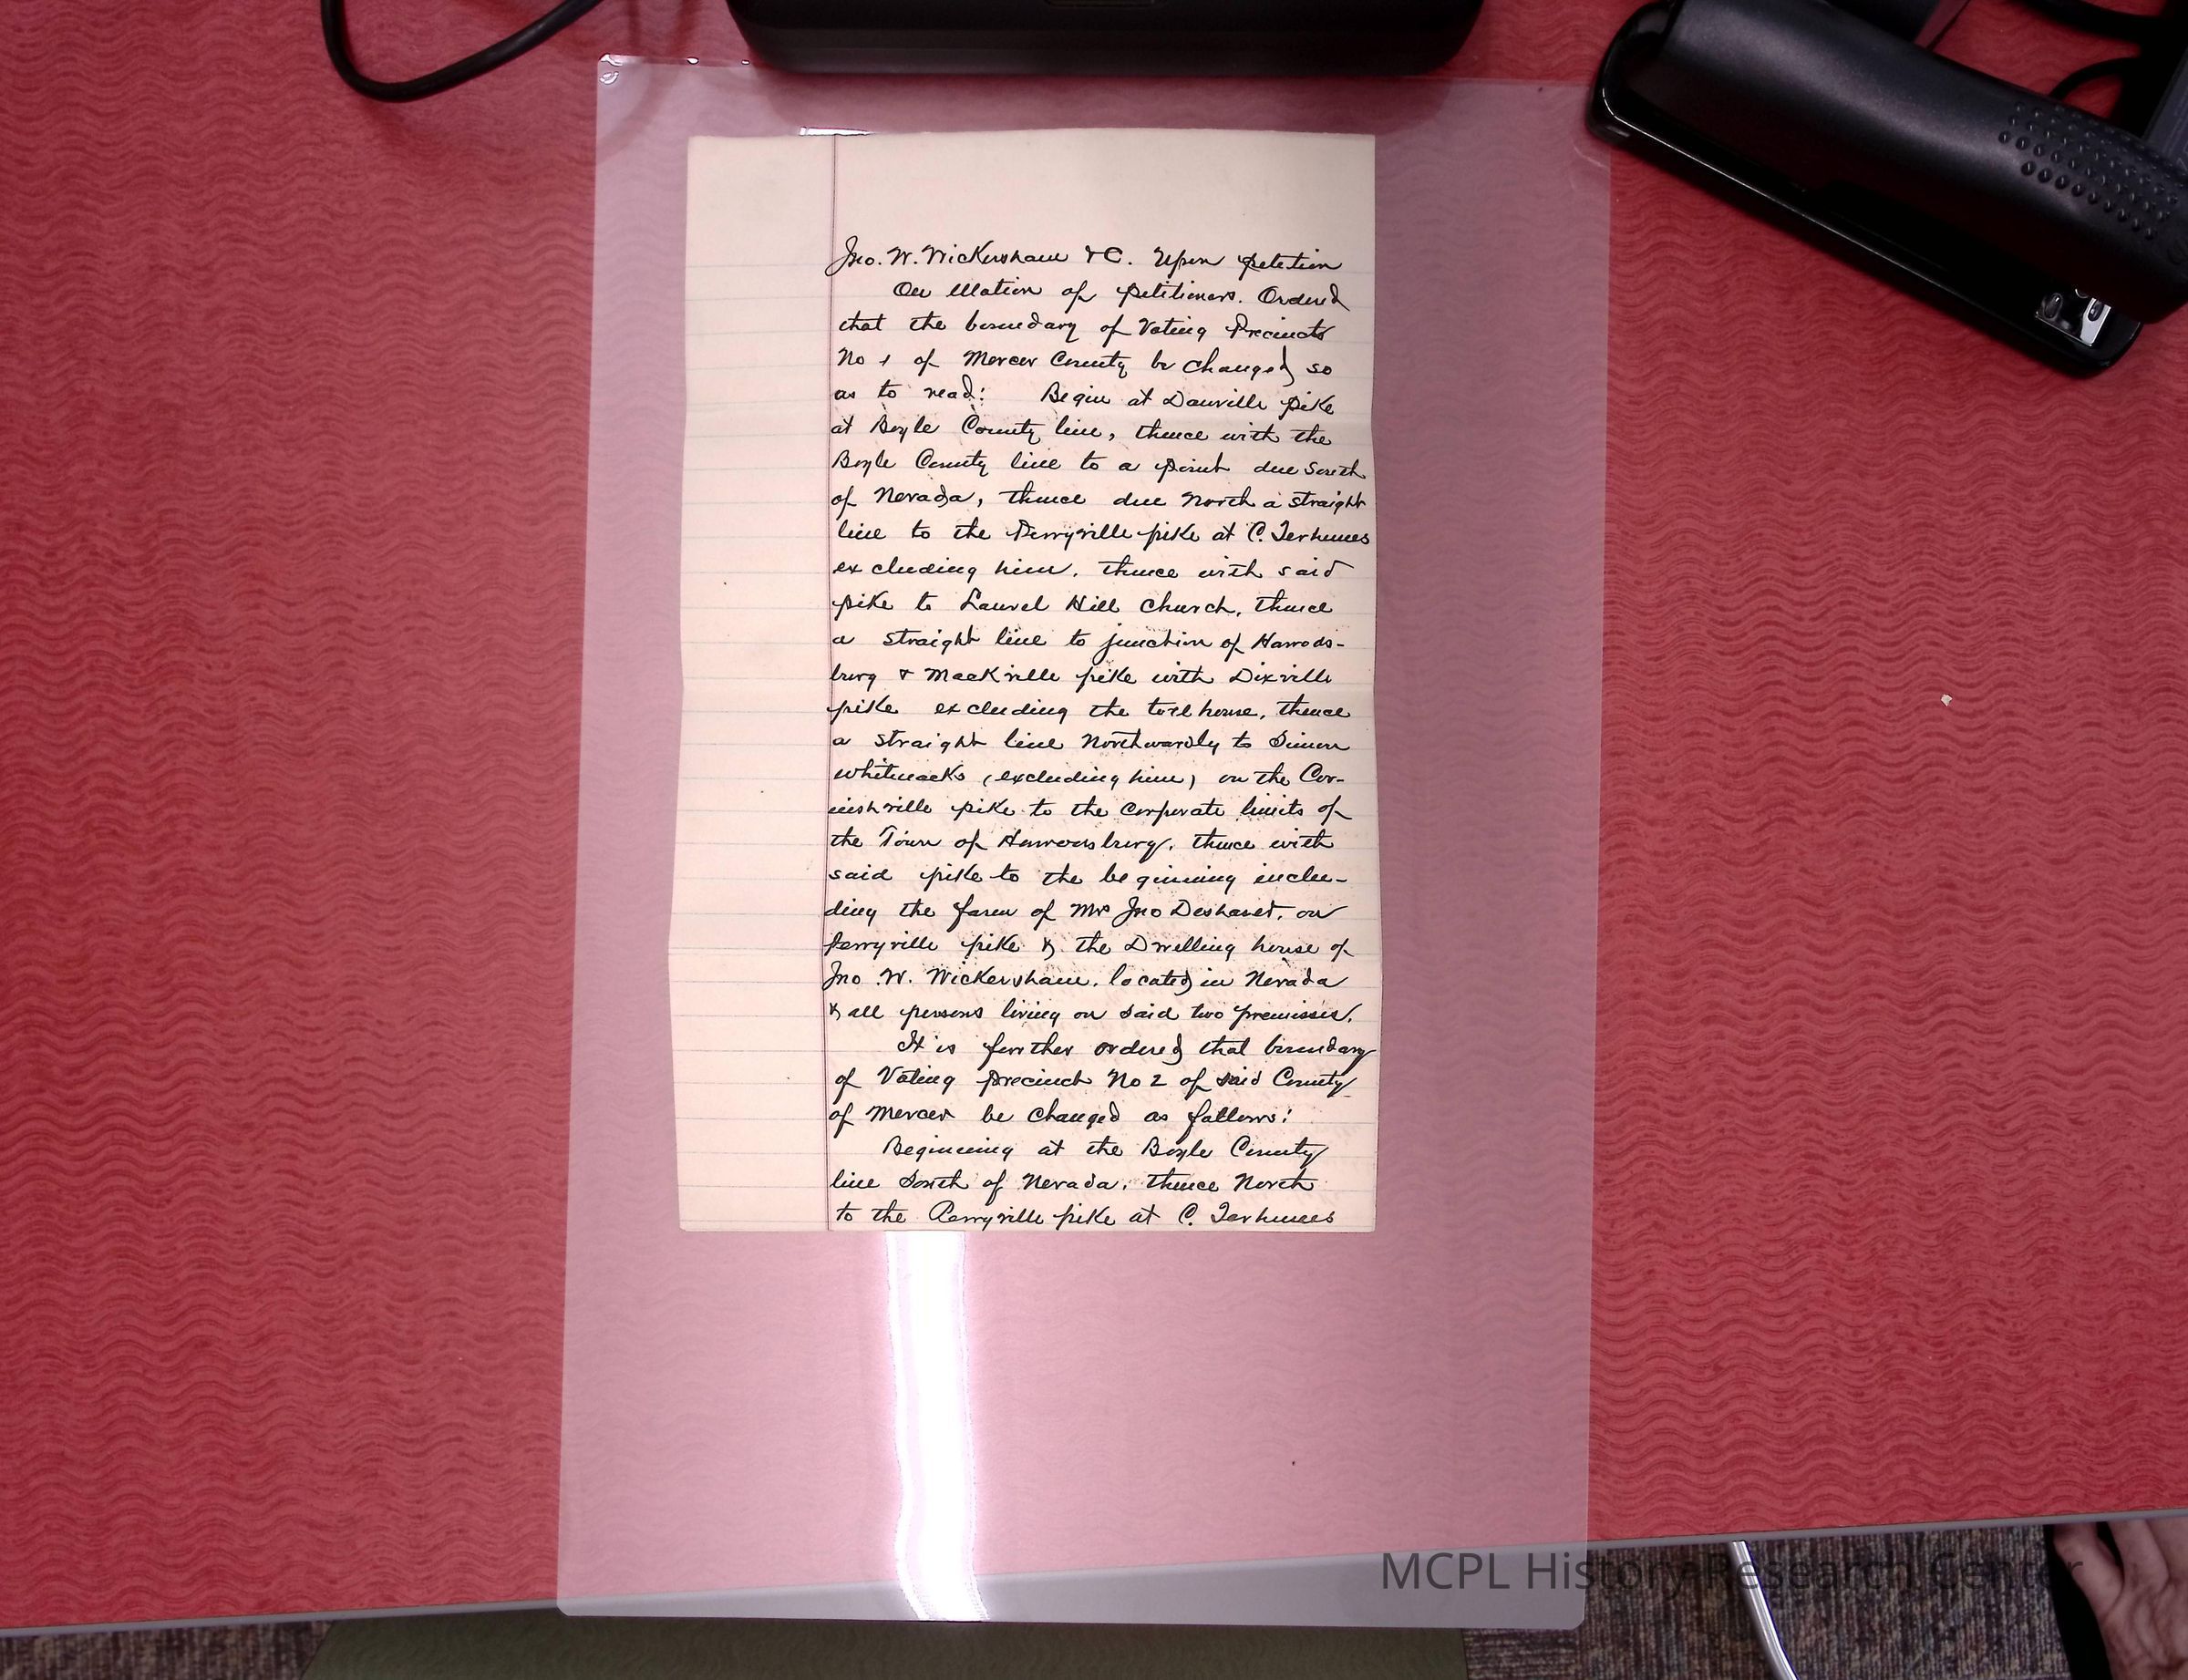 Jno. W. Wickersham &C. Upon petition
On Motion of petitioners. Ordered
that the boundary of Voting Precincts
No 1 of Mercer County be changed so
as to read: Begin at Danville pike
at Boyle County line, thence with the
Boyle County line to a point due South
of Nevada, thence due North a straight
line to the Perryville pike at C. Terhunes
excluding him. thence with said
pike to Laurel Hill Church, thence
a straight line to junction of Harrods-
burg & Mackville pike with Dixville
pike excluding the toll house, thence
a straight line Northwardly to Simon
Whitenacks (excluding him) on the Cor-
nishville pike to the Corporate limits of
the Town of Harrodsburg, thence with
said pike to the beginning inclu-
ding the farm of Mrs Jno on
Perryville pike & the Dwelling house of
Jno W. Wickersham. located in Nevada
& all persons living on said two premises.
It is further ordered that boundary
of Voting Precinct No 2 of said County
of Mercer be changed as follows:
Beginning at the Boyle County
line South of Nevada. thence North
to the Perryville pike at C. Terhunes
MCPL History Research Center